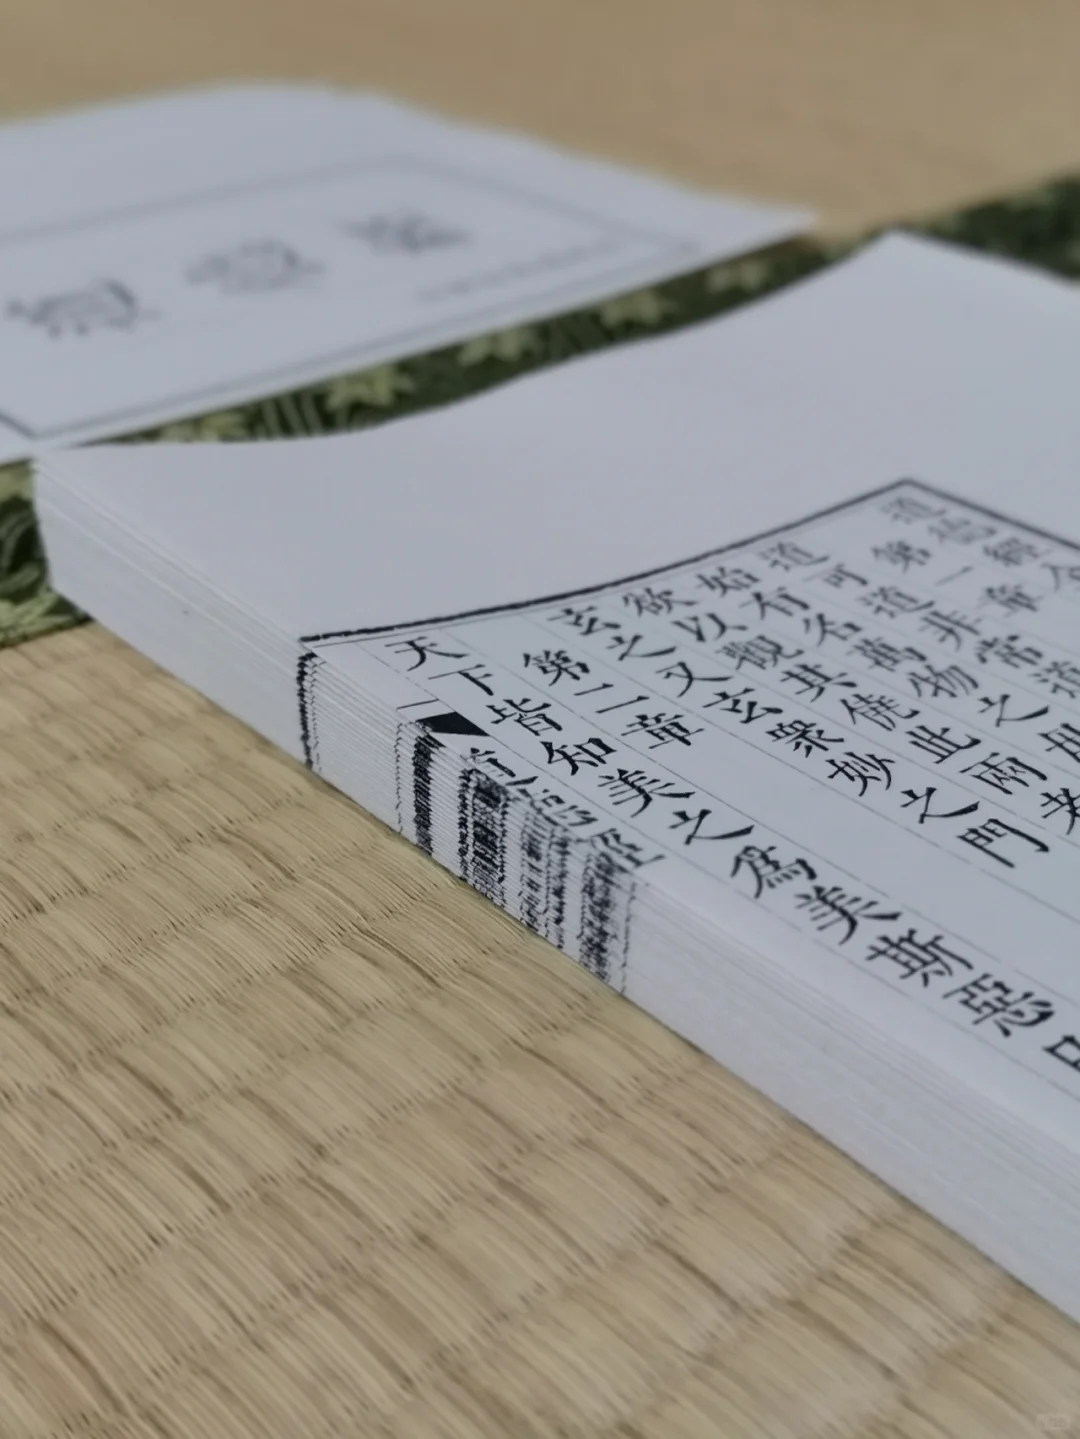 道德經全
第一章
道可道非常道
始有名萬物之母
欲以觀其僥此兩者
玄之又玄衆妙之門
第二章
天下皆知美之爲美斯惡
道德經